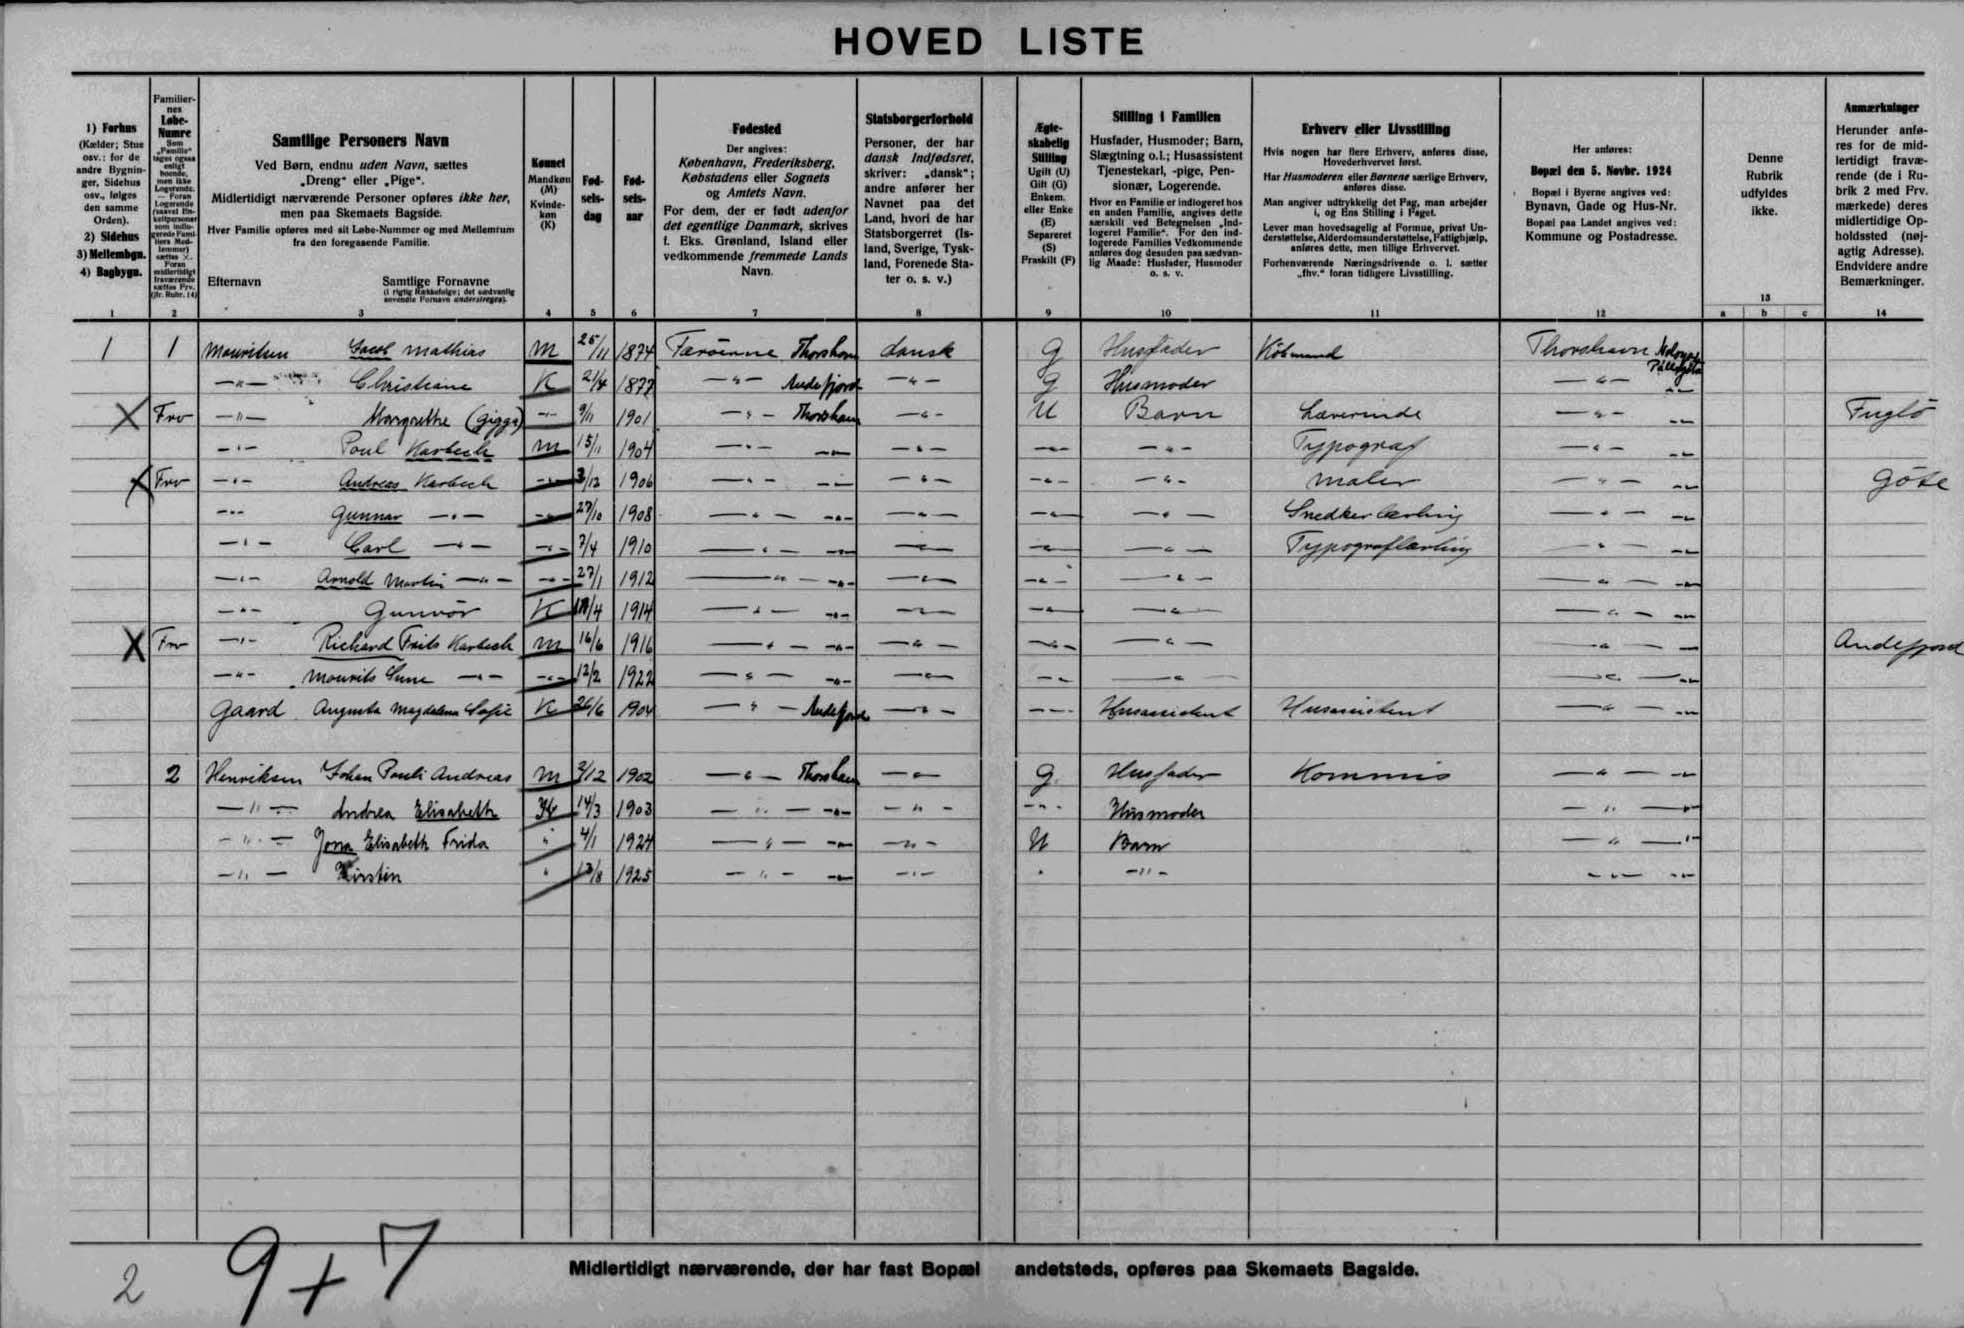 HOVED LISTE
1) Forhus
(Kælder; Stue
osv.: for de
andre Bygnin-
ger, Sidehus
osv., følges
den samme
Orden).
2) Sidehus
3) Mellembgn.
4) Bagbygn.
1
Familier-
nes
Løbe-
Numre
2
Samtlige Personers Navn
Ved Børn, endnu uden Navn, sættes
„Dreng“ eller „Pige“.
Midlertidigt nærværende Personer opføres ikke her,
men paa Skemaets Bagside.
Hver Familie opføres med sit Løbe-Nummer og med Mellemrum
fra den foregaaende Familie.
Efternavn Samtlige Fornavne
(i rigtig Rækkefølge; det sædvanlig
anvendte Fornavn understreges).
3
Kønnet
Mandkøn
(M)
Kvinde-
køn
(K)
4
Fød-
sels-
dag
5
Fød-
sels-
aar
6
Fødested
Der angives:
København, Frederiksberg,
Købstadens eller Sognets
og Amtets Navn.
For dem, der er født udenfor
det egentlige Danmark, skrives
f. Eks. Grønland, Island eller
vedkommende fremmede Lands
Navn.
7
Statsborgerforhold
Personer, der har
dansk Indfødsret,
skriver: „dansk“;
andre anfører her
Navnet paa det
Land, hvori de har
Statsborgerret (Is-
land, Sverige, Tysk-
land, Forenede Sta-
ter o. s. v.)
8
Ægte-
skabelig
Stilling
Ugift (U)
Gift (G)
Enkem.
eller Enke
(E)
Separeret
(S)
Fraskilt (F)
9
Stilling i Familien
Husfader, Husmoder; Barn,
Slægtning o.l.; Husassistent
Tjenestekarl, -pige, Pen-
sionær, Logerende.
Hvor en Familie er indlogeret hos
en anden Familie, angives dette
særskilt ved Betegnelsen „Ind-
logeret Familie“. For den ind-
logerede Families Vedkommende
anføres dog desuden paa sædvan-
lig Maade: Husfader, Husmoder
o. s. v.
10
Erhverv eller Livsstilling
Hvis nogen har flere Erhverv, anføres disse,
Hovederhvervet først.
Har Husmoderen eller Børnene særlige Erhverv,
anføres disse.
Man angiver udtrykkelig det Fag, man arbejder
i, og Ens Stilling i Faget.
Lever man hovedsagelig af Formue, privat Un-
derstøttelse, Alderdomsunderstøttelse, Fattighjælp,
anføres dette, men tillige Erhvervet.
Forhenværende Næringsdrivende o. l. sætter
„fhv.“ foran tidligere Livsstilling.
11
Her anføres:
Bopæl den 5. Novbr. 1924
Bopæl i Byerne angives ved:
Bynavn, Gade og Hus-Nr.
Bopæl paa Landet angives ved:
Kommune og Postadresse.
12
Denne
Rubrik
udfyldes
ikke.
13
a b c
Anmærkninger
Herunder anfø-
res for de mid-
lertidigt fravæ-
rende (de i Ru-
brik 2 med Frv.
mærkede) deres
midlertidige Op-
holdssted (nøj-
agtig Adresse).
Endvidere andre
Bemærkninger.
14
1 1 Mouritsen Jacob Mathias M 25/11 1874 Færöerne Thorshavn dansk G Husfader Købmand Thorshavn
-"- Christiane K 2/4 1877 -"- Andefjord -"- G Husmoder -"-
X Frv -"- Margrethe (Gigga) -"- 9/11 1901 -"- Thorshavn -"- U Barn Lærerinde -"- -"- Fuglö
-"- Poul Karbech M 15/11 1904 -"- -"- -"- -"- -"- Typograf -"- -"-
X Frv -"- Andreas Karbech -"- 3/12 1906 -"- -"- -"- -"- -"- Maler -"- -"- Göte
-"- Gunnar -"- -"- 27/10 1908 -"- -"- -"- -"- -"- Snedkerlærling -"- -"-
-"- Carl -"- -"- 7/4 1910 -"- -"- -"- -"- -"- Typograflærling -"- -"-
-"- Arnold Martin -"- -"- 27/1 1912 -"- -"- -"- -"- -"- -"- -"-
-"- Gunvör K /4 1914 -"- -"- -"- -"- -"- -"- -"-
X Frv -"- Richard Frits Karbech M 16/6 1916 -"- -"- -"- -"- -"- -"- -"- Andefjord
-"- Mourits Sune -"- -"- 12/2 1922 -"- -"- -"- -"- -"- -"- -"-
Gaard Augusta Magdalena Sofie K 26/6 1904 -"- Andefjord -"- -"- Husassistent Husassistent -"- -"-
2 Henriksen Johan Pauli Andreas M 2/12 1902 -"- Thorshavn -"- G. Husfader Kommis -"- -"-
-"- Andrea Elisabeth K 14/3 1903 -"- -"- -"- -"- Husmoder -"- -"-
-"- Jona Elisabeth Frida " 4/1 1924 -"- -"- -"- U Barn -"- -"-
-"- Kirstin " 13/8 1925 -"- -"- -"- " -"- -"- -"-
Midlertidigt nærværende, der har fast Bopæl andetsteds, opføres paa Skemaets Bagside.
2 9+7